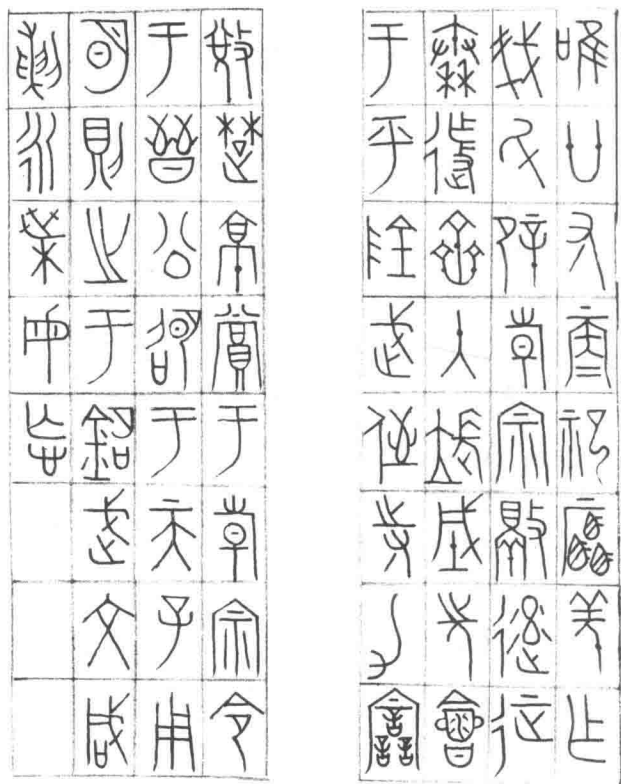 唯廿又再祀驫羌乍
戎氒辟倝宗敲𨒥征
秦迮齊入長城先會
于平陰武侄寺力𧮪
敓楚京賞于倝宗令
于晉公卲于天子用
明則之于銘武文咸
剌永枼毋忘